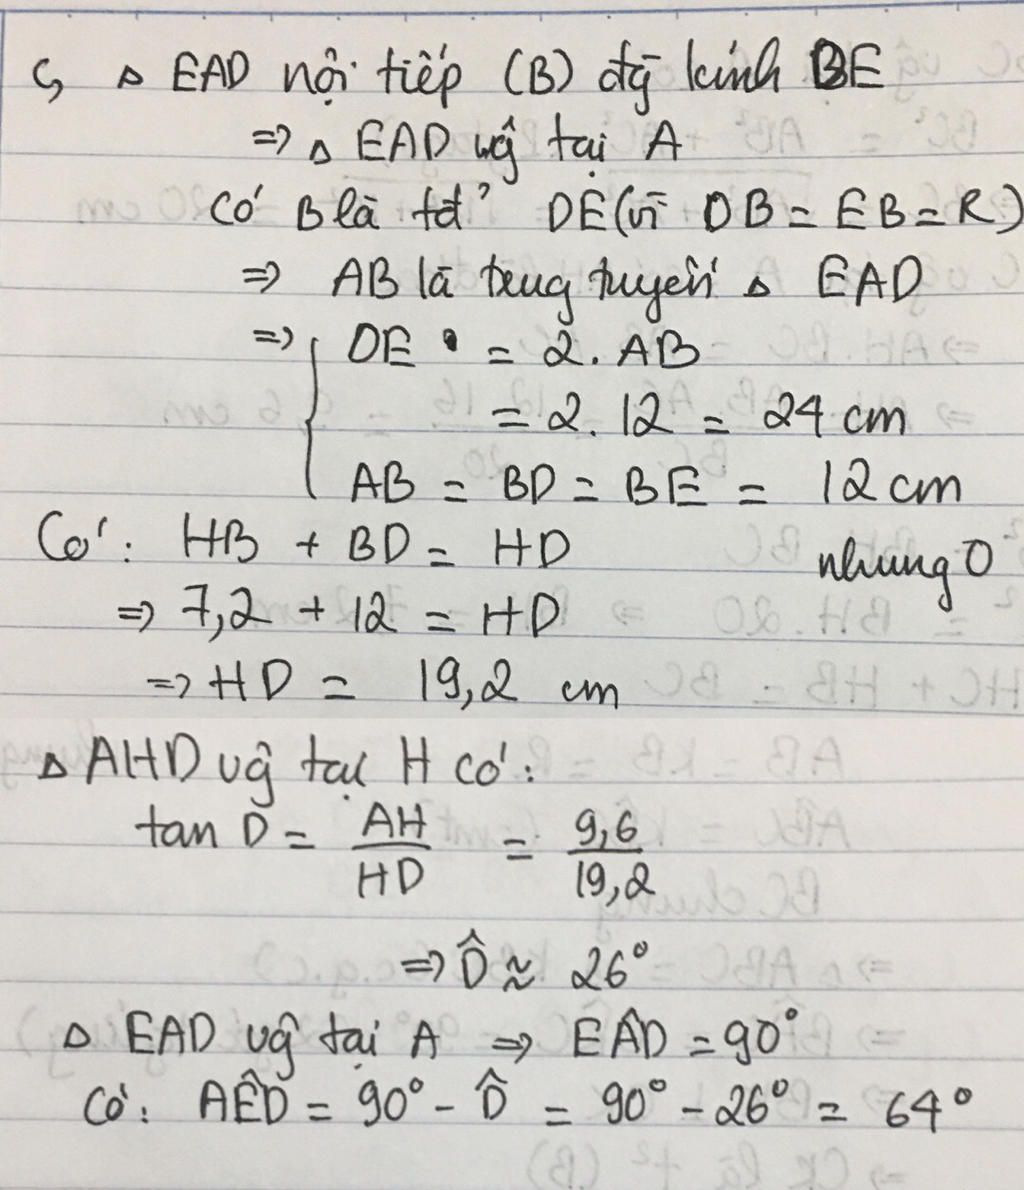 c, △ EAD nội tiếp (B) đg̃ kính BE
=> △ EAD vg̃ tại A
Có B là tđ' DE (vì DB = EB = R)
=> AB là trung tuyến △ EAD
=> { DE = 2. AB
= 2. 12 = 24 cm
AB = BD = BE = 12 cm
Có: HB + BD = HD
nhung O
=> 7,2 + 12 = HD
=> HD = 19,2 cm
△ AHD vg̃ tại H có:
tan D = AH/HD = 9,6/19,2
=> D̂ ≈ 26°
△ EAD vg̃ tại A => EÂD = 90°
Có: AÊD = 90° - D̂ = 90° - 26° = 64°